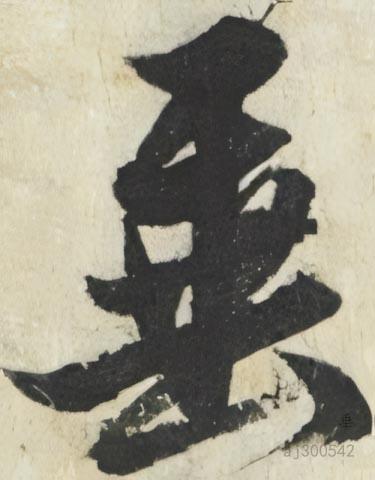 重
aj300542